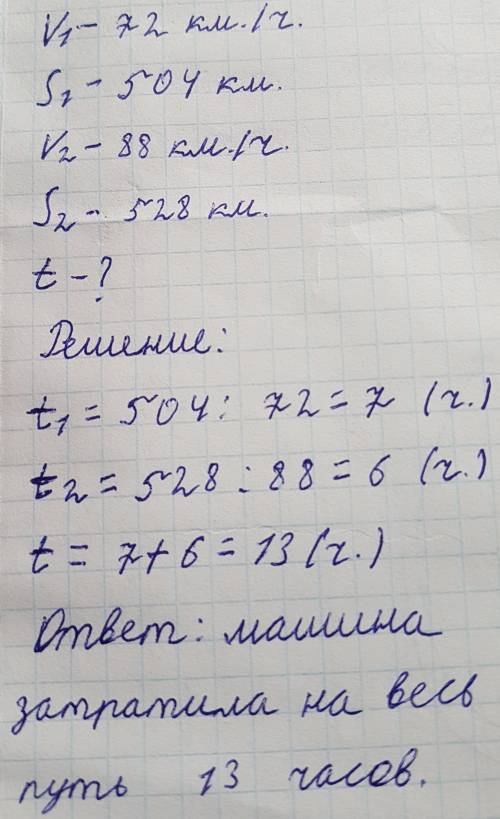 V1 - 72 км./ч.
S1 - 504 км.
V2 - 88 км./ч.
S2 - 528 км.
t - ?
Решение:
t1 = 504 : 72 = 7 (ч.)
t2 = 528 : 88 = 6 (ч.)
t = 7 + 6 = 13 (ч.)
Ответ: машина
затратила на весь
путь 13 часов.